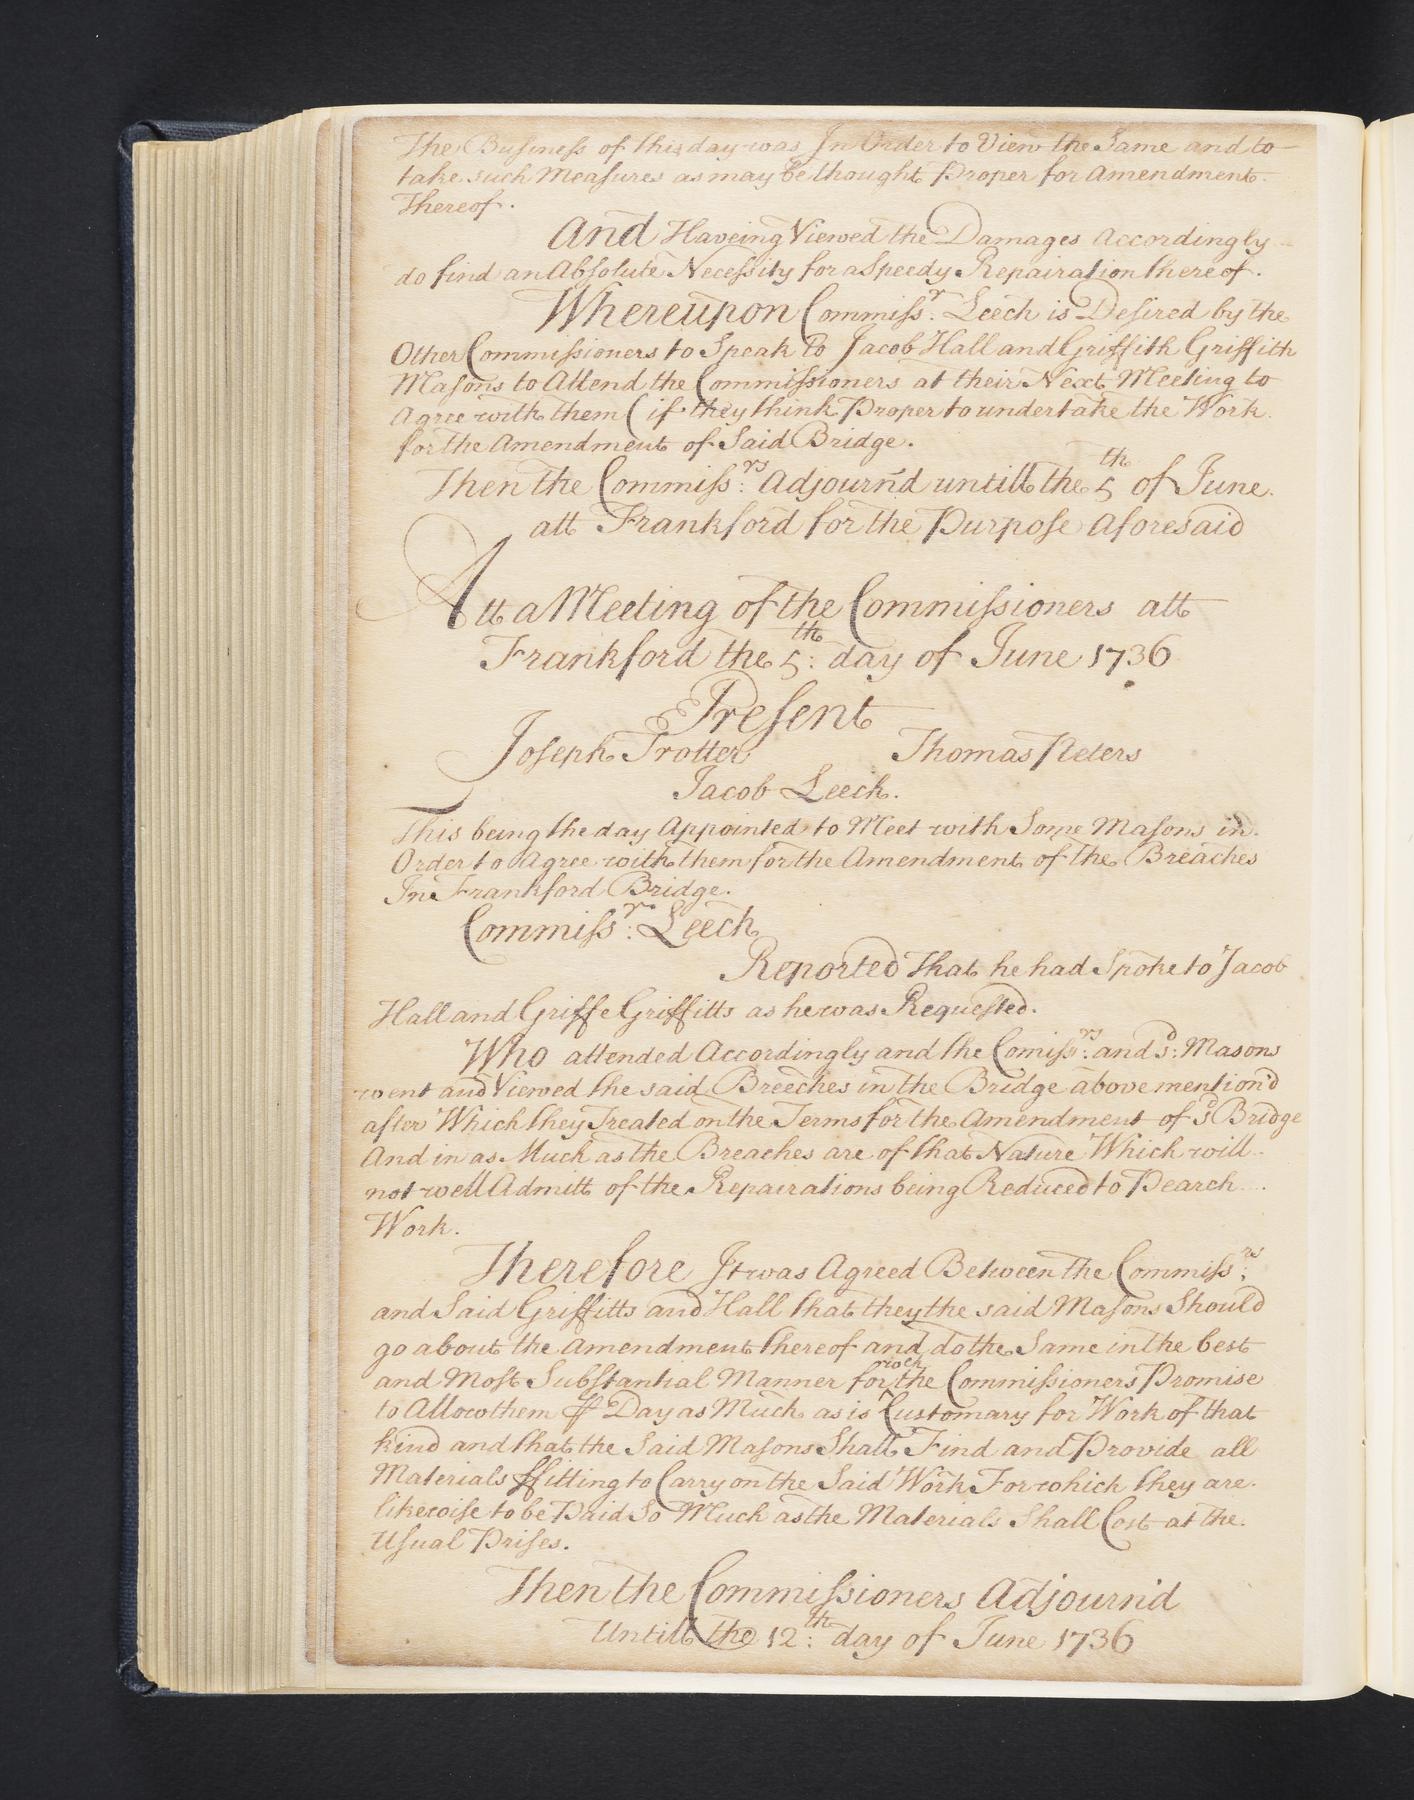 The Business of this day was In Order to View the Same and to
take such Measures as may be thought Proper for Amendment
Thereof.
And Haveing Viewed the Damages Accordingly
do find an Absolute Necessity for a Speedy Repairation thereof.
Whereupon Commissr. Leech is Desired by the
Other Commissioners to Speak to Jacob Hall and Griffith Griffith
Masons to Attend the Commissioners at their Next Meeting to
Agree with them (if they think Proper to undertake the Work
for the Amendment of Said Bridge.
Then the Commissrs: Adjourn'd untill the 5th of June
att Frankford for the Purpose Aforesaid
Att a Meeting of the Commissioners att
Frankford the 5th: day of June 1736
Present
Joseph Trotter Thomas Peters
Jacob Leech.
This being the day Appointed to Meet with Some Masons in
Order to Agree with them for the Amendment of the Breaches
In Frankford Bridge.
Commissr: Leech
Reported That he had Spoke to Jacob
Hall and Griffe Griffitts as he was Requested.
Who attended Accordingly and the Comissrs: and sd: Masons
went and Viewed the said Breeches in the Bridge above mention'd
after Which they Treated on the Terms for the Amendment of sd Bridge
And in as Much as the Breaches are of that Nature Which will
not well Admitt of the Repairations being Reduced to Pearch
Work.
Therefore It was Agreed Between the Commissrs;
and Said Griffitts and Hall that they the said Masons Should
go about the Amendment thereof and do the Same in the best
and Most Substantial Manner for wich the Commissioners Promise
to Allow them ⅌ Day as Much as is Customary for Work of that
kind and that the Said Masons Shall Find and Provide all
Materials ffitting to Carry on the Said Work For which they are
likewise to be Paid So Much as the Materials Shall Cost at the
Usual Prises.
Then the Commissioners Adjourn'd
Untill the 12th: day of June 1736